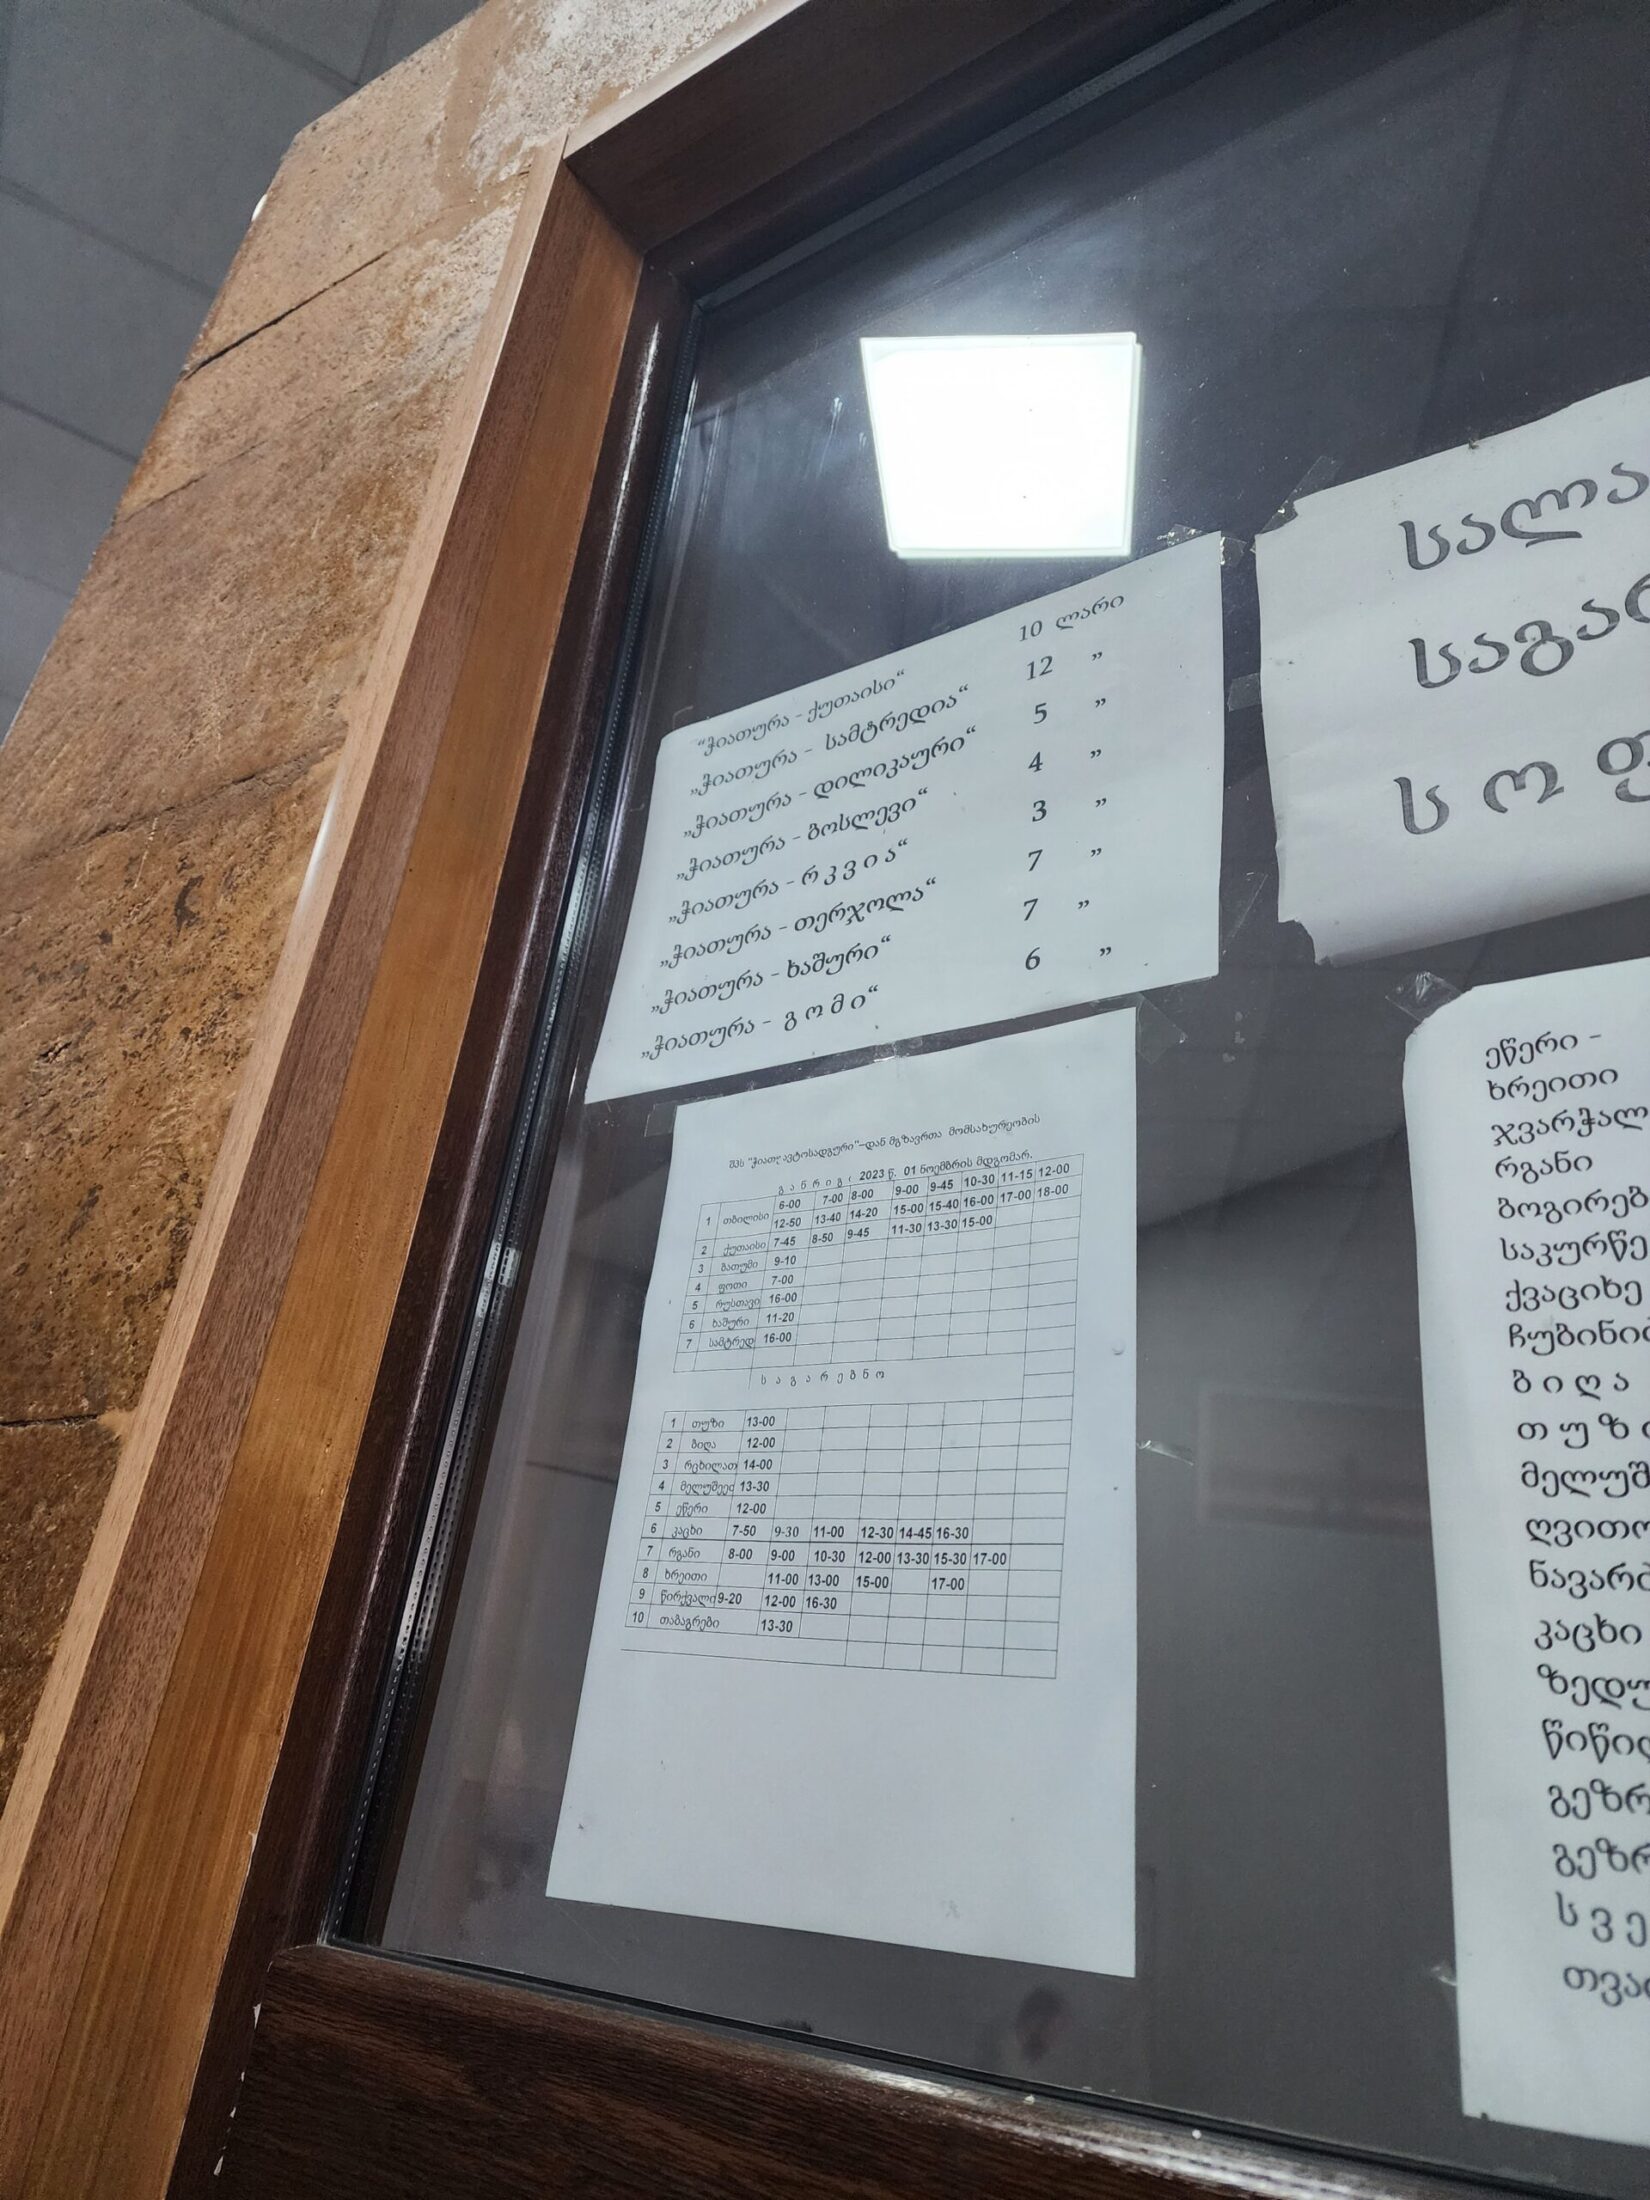 “ჭიათურა - ქუთაისი“ 10 ლარი
„ჭიათურა - სამტრედია“ 12 ”
„ჭიათურა - დილიკაური“ 5 ”
„ჭიათურა - გოსლევი“ 4 ”
„ჭიათურა - რ კ ვ ი ა“ 3 ”
„ჭიათურა - თერჯოლა“ 7 ”
„ჭიათურა - ხაშური“ 7 ”
„ჭიათურა - გ ო მ ი“ 6 ”
შპს "ჭიათ ავტოსადგური"-დან მგზავრთა მომსახურეობის
გ ა ნ რ ი გ ი 2023 წ. 01 ნოემბრის მდგომარ.
1 თბილისი 6-00 7-00 8-00 9-00 9-45 10-30 11-15 12-00
12-50 13-40 14-20 15-00 15-40 16-00 17-00 18-00
2 ქუთაისი 7-45 8-50 9-45 11-30 13-30 15-00
3 ბათუმი 9-10
4 ფოთი 7-00
5 რუსთავი 16-00
6 ხაშური 11-20
7 სამტრედ 16-00
ს ა გ ა რ ე უ ბ ნ ო
1 თუზი 13-00
2 ბიღა 12-00
3 რცხილათ 14-00
4 მელუშეე 13-30
5 ეწერი 12-00
6 კაცხი 7-50 9-30 11-00 12-30 14-45 16-30
7 რგანი 8-00 9-00 10-30 12-00 13-30 15-30 17-00
8 ხრეითი 11-00 13-00 15-00 17-00
9 წირქვალი 9-20 12-00 16-30
10 თაბაგრები 13-30
სალა
საგარ
ს ო ფ
ეწერი -
ხრეითი
ჯვარჭალ
რგანი
ბოგირებ
საკურწე
ქვაციხე
ჩუბინი
ბ ი ღ ა
თ უ ზ ი
მელუშ
ღვითო
ნავარ
კაცხი
ზედუ
წიწი
გეზრ
გეზრ
ს ვ ე
თვა